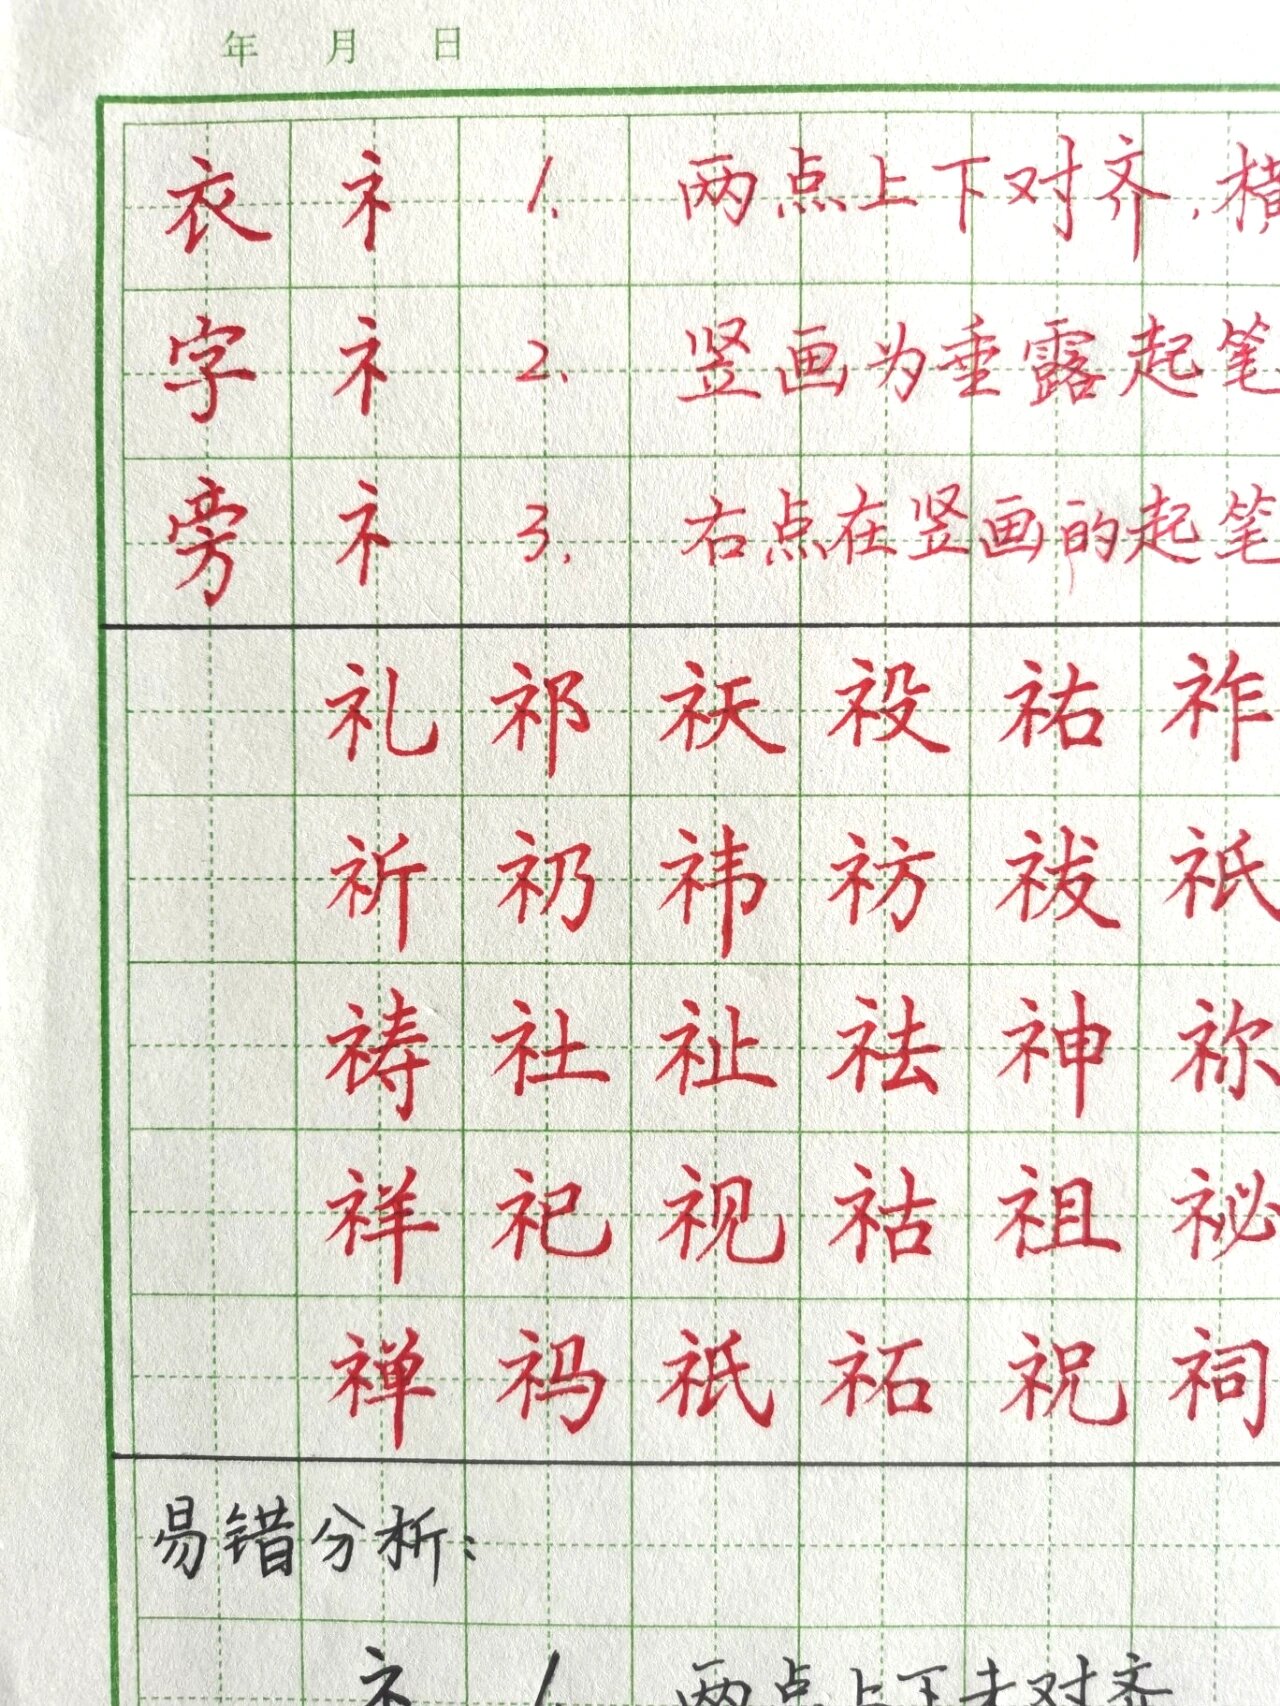 年 月 日
衣 礻 1. 两点上下对齐,横
字 礻 2. 竖画为垂露起笔
旁 礻 3. 右点在竖画的起笔
礼 祁 祆 祋 祐 祚
祈 礽 祎 祊 祓 祇
祷 社 祉 祛 神 祢
祥 祀 视 祜 祖 祕
禅 祃 祗 祏 祝 祠
易错分析:
礻 1 两点上下未对齐